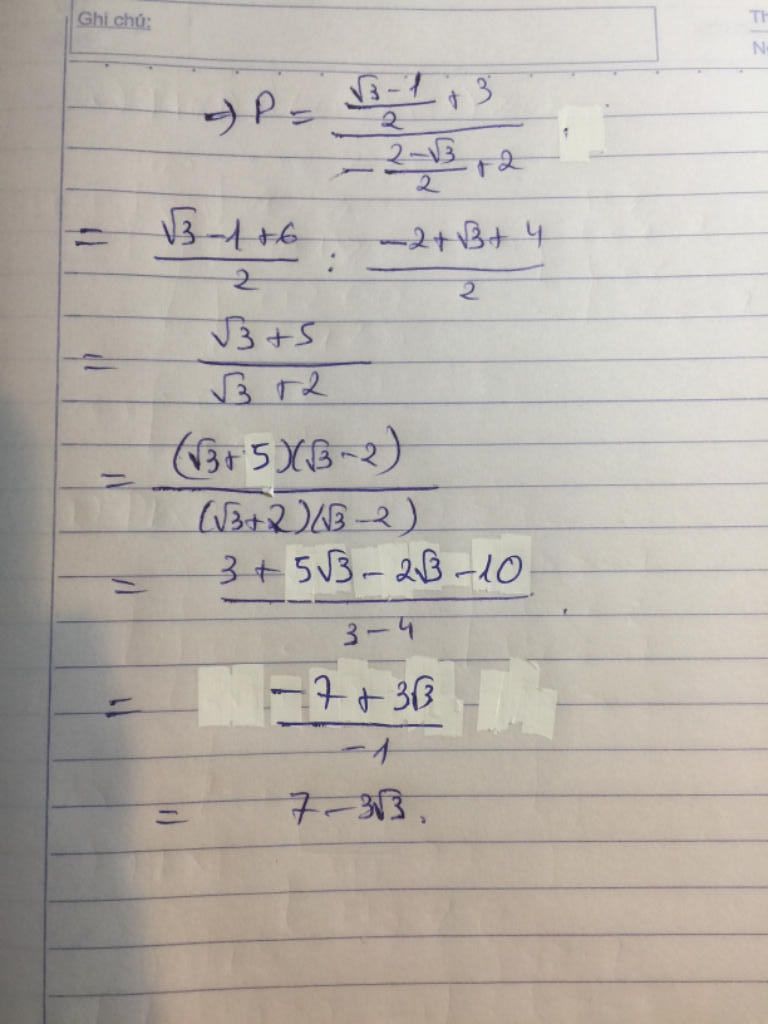 Ghi chú:
Th
N
→ P = ((√3 - 1)/2 + 3)/(- (2 - √3)/2 + 2)
= (√3 - 1 + 6)/2 : (-2 + √3 + 4)/2
= (√3 + 5)/(√3 + 2)
= ((√3 + 5)(√3 - 2))/((√3 + 2)(√3 - 2))
= (3 + 5√3 - 2√3 - 10)/(3 - 4)
= (-7 + 3√3)/(-1)
= 7 - 3√3.